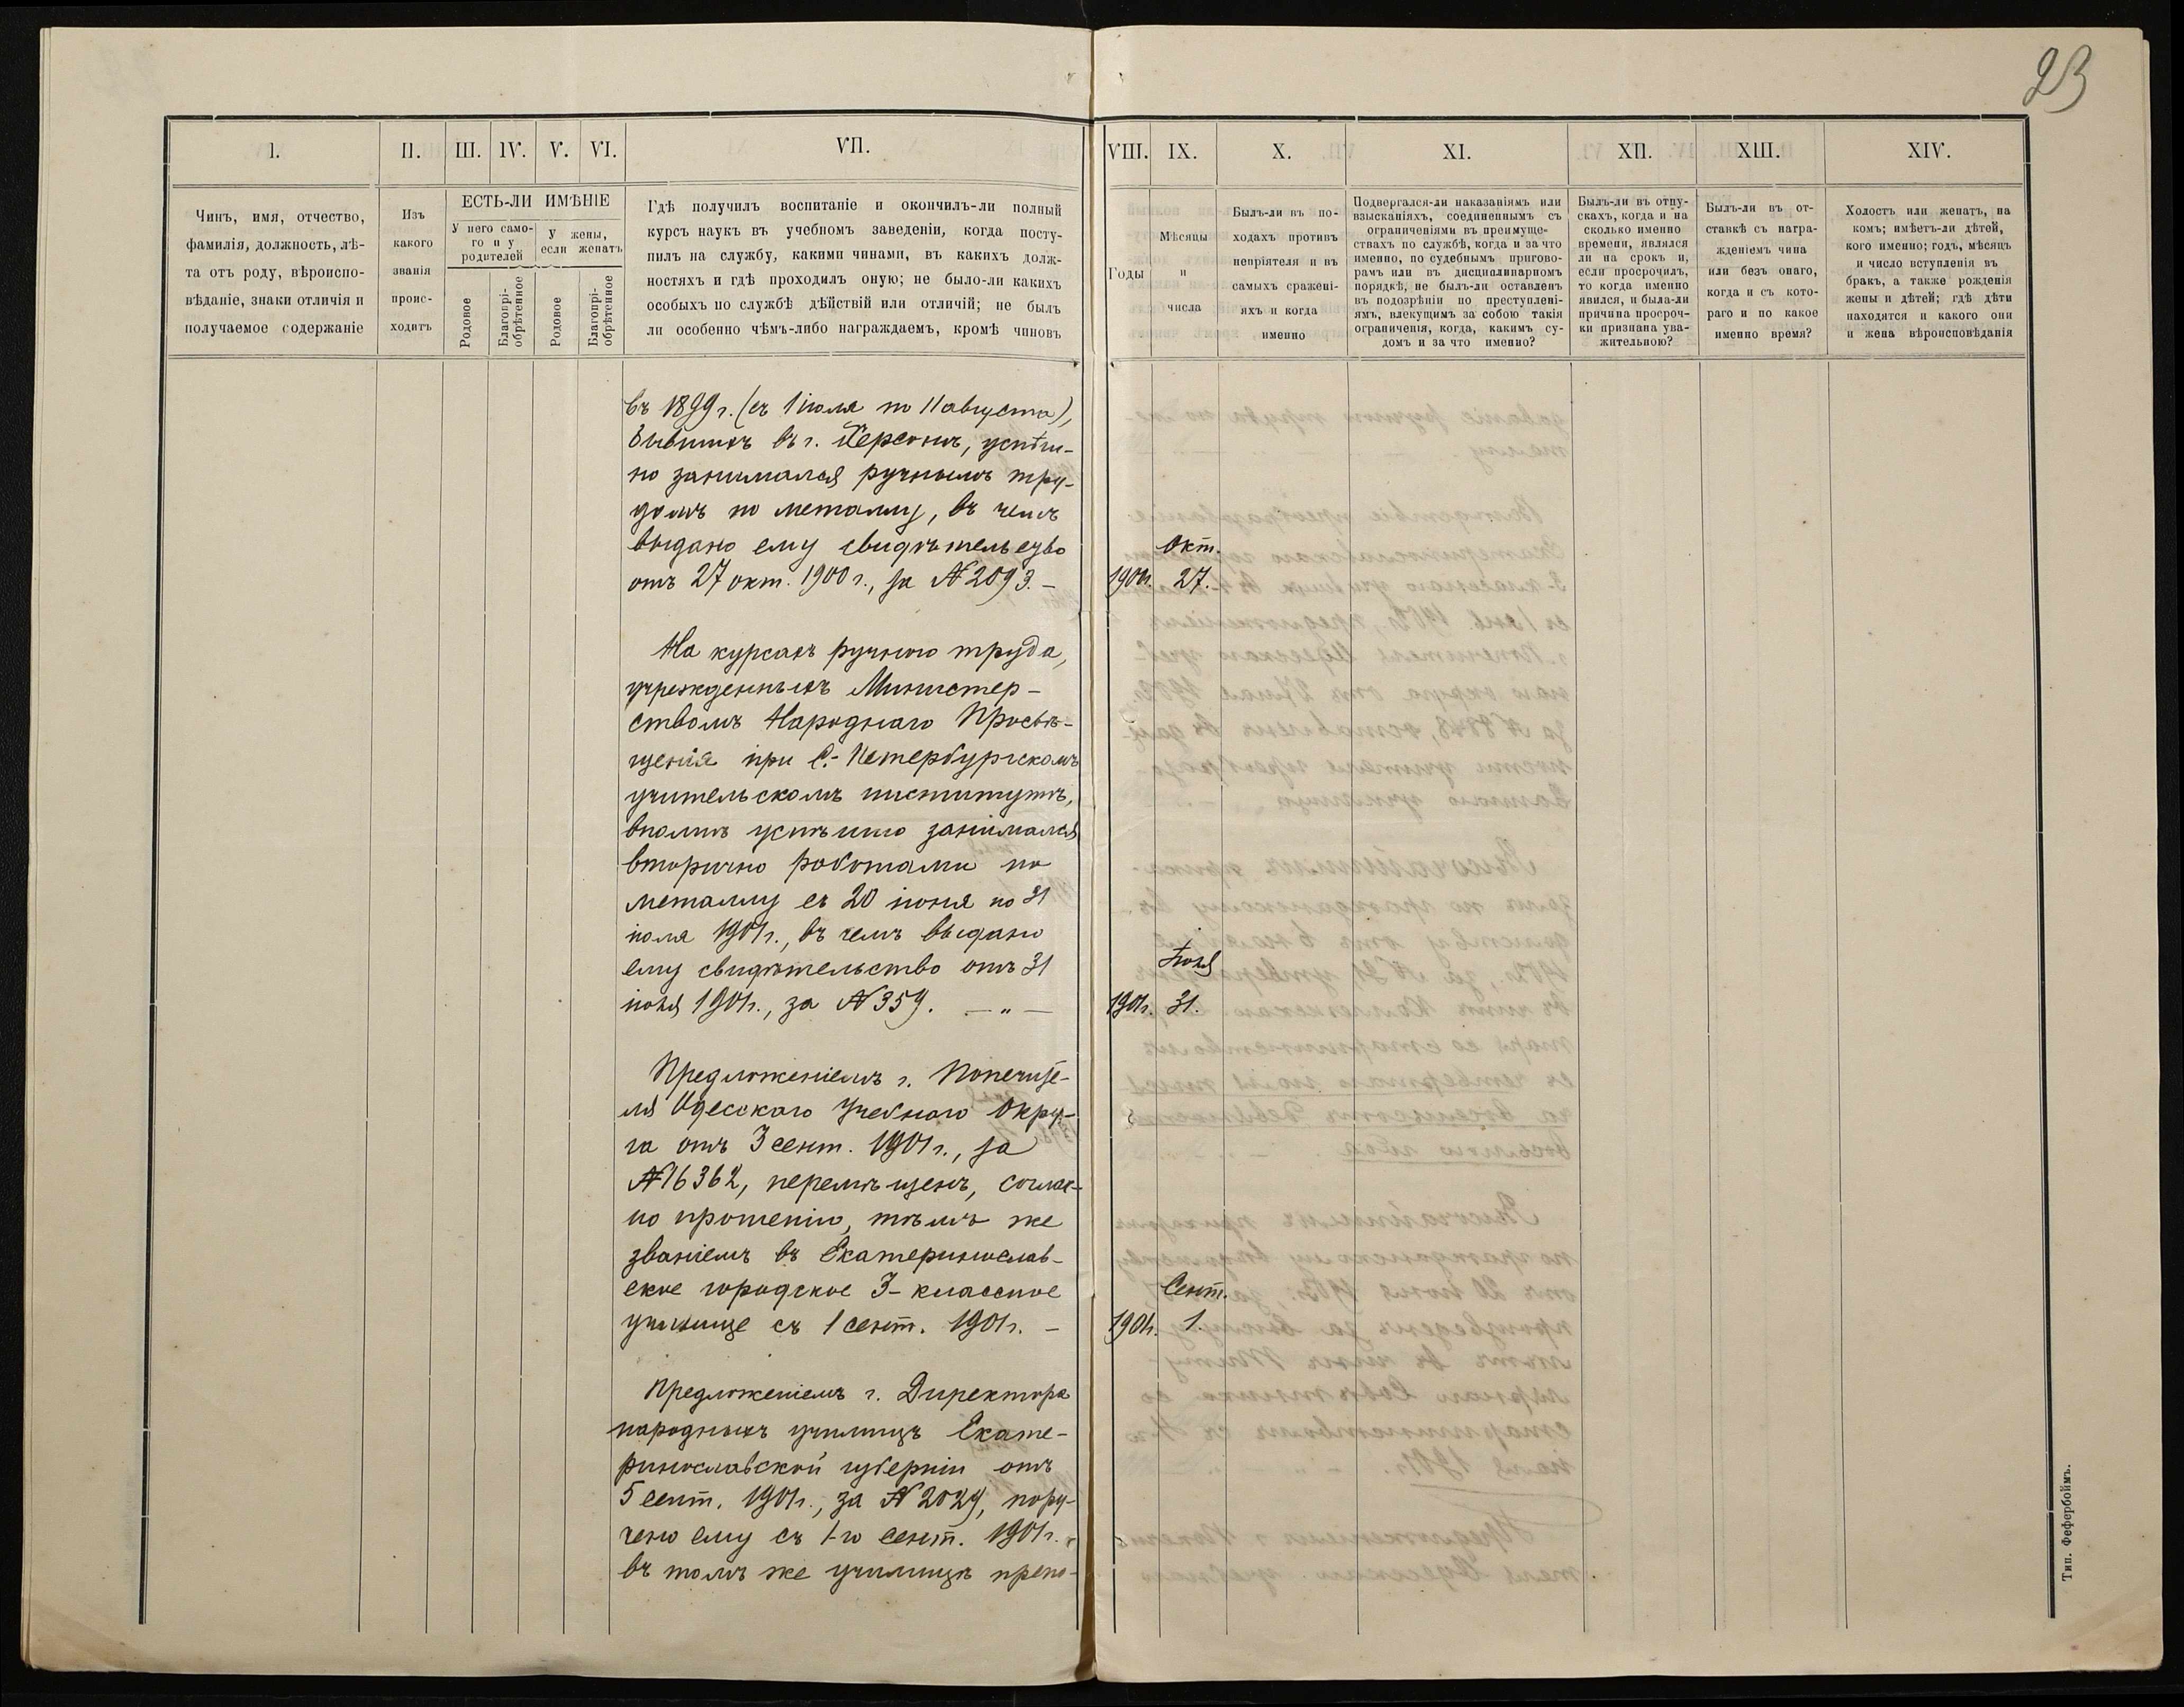 23
I.
II.
III.
IV.
V.
VI.
VII.
VIII.
IX.
X.
XI.
XII.
XIII.
XIV.
Чинъ, имя, отчество,
фамилія, должность, лѣ-
та отъ роду, вѣроиспо-
вѣданіе, знаки отличія и
получаемое содержаніе
Изъ
какого
званія
проис-
ходитъ
ЕСТЬ-ЛИ ИМѢНІЕ
У него само-
го и у
родителей
У жены,
если женатъ
Родовое
Благопрі-
обрѣтенное
Родовое
Благопрі-
обрѣтенное
Гдѣ получилъ воспитаніе и окончилъ-ли полный
курсъ наукъ въ учебномъ заведеніи, когда посту-
пилъ на службу, какими чинами, въ какихъ долж-
ностяхъ и гдѣ проходилъ оную; не было-ли какихъ
особыхъ по службѣ дѣйствій или отличій; не былъ
ли особенно чѣмъ-либо награждаемъ, кромѣ чиновъ
Годы
Мѣсяцы
и
числа
Былъ-ли въ по-
ходахъ противъ
непріятеля и въ
самыхъ сражені-
яхъ и когда
именно
Подвергался-ли наказаніямъ или
взысканіяхъ, соединеннымъ съ
ограниченіями въ преимуще-
ствахъ по службѣ, когда и за что
именно, по судебнымъ пригово-
рамъ или въ дисциплинарномъ
порядкѣ, не былъ-ли оставленъ
въ подозрѣніи по преступлені-
ямъ, влекущимъ за собою такія
ограниченія, когда, какимъ су-
домъ и за что именно?
Былъ-ли въ отпу-
скахъ, когда и на
сколько именно
времени, являлся
ли на срокъ и,
если просрочилъ,
то когда именно
явился, и была-ли
причина просроч-
ки признана ува-
жительною?
Былъ-ли въ от-
ставкѣ съ награ-
жденіемъ чина
или безъ онаго,
когда и съ кото-
раго и по какое
именно время?
Холостъ или женатъ, на
комъ; имѣетъ-ли дѣтей,
кого именно; годъ, мѣсяцъ
и число вступленія въ
бракъ, а также рожденія
жены и дѣтей; гдѣ дѣти
находятся и какого они
и жена вѣроисповѣданія
въ 1899 г. (съ 1 іюля по 11 августа),
бывшихъ въ г. Херсонѣ, успѣш-
но занимался ручнымъ тру-
домъ по металлу, въ чемъ
выдано ему свидѣтельство
отъ 27 окт. 1900 г., за № 2093. –
Окт.
1900г. 27.
На курсахъ ручного труда,
учрежденныхъ Министер-
ствомъ Народнаго Просвѣ-
щенія при С.-Петербургскомъ
учительскомъ институтѣ,
вполнѣ успѣшно занимался
вторично работами по
металлу съ 20 іюня по 31
іюля 1901г., въ чемъ выдано
ему свидѣтельство отъ 31
іюля 1901г., за № 359. — „ —
Іюля
1901г. 31.
Предложеніемъ г. Попечите-
ля Одесскаго Учебнаго Окру-
га отъ 3 сент. 1901г., за
№ 16362, перемѣщенъ, соглас-
но прошенію, тѣмъ же
званіемъ въ Екатеринослав-
ское городское 3-классное
училище съ 1 сент. 1901г. –
Сент.
1901г. 1.
Предложеніемъ г. Директора
народныхъ училищъ Екате-
ринославской губерніи отъ
5 сент. 1901г., за № 2029, пору-
чено ему съ 1-го сент. 1901г.
въ томъ же училищѣ препо-
Тип. Фефербоймъ.